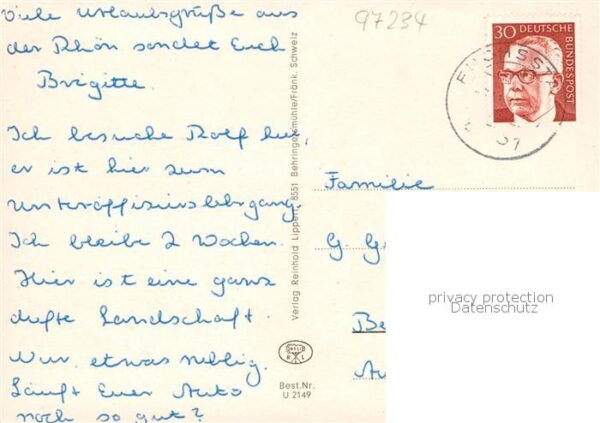 Viele Urlaubsgrüße aus
der Rhön sendet Euch
Brigitte.
Ich besuche Rolf hier,
er ist hier zum
Unteroffizierslehrgang.
Ich bleibe 2 Wochen.
Hier ist eine ganz
dufte Landschaft.
Nur etwas neblig.
Läuft Euer Auto
noch so gut?
Verlag Reinhold Lippert, 8551 Behringersmühle/Fränk. Schweiz
R L
Best.Nr.
U 2149
97234
30 DEUTSCHE
BUNDESPOST
Familie
G. G
Be
privacy protection
Datenschutz